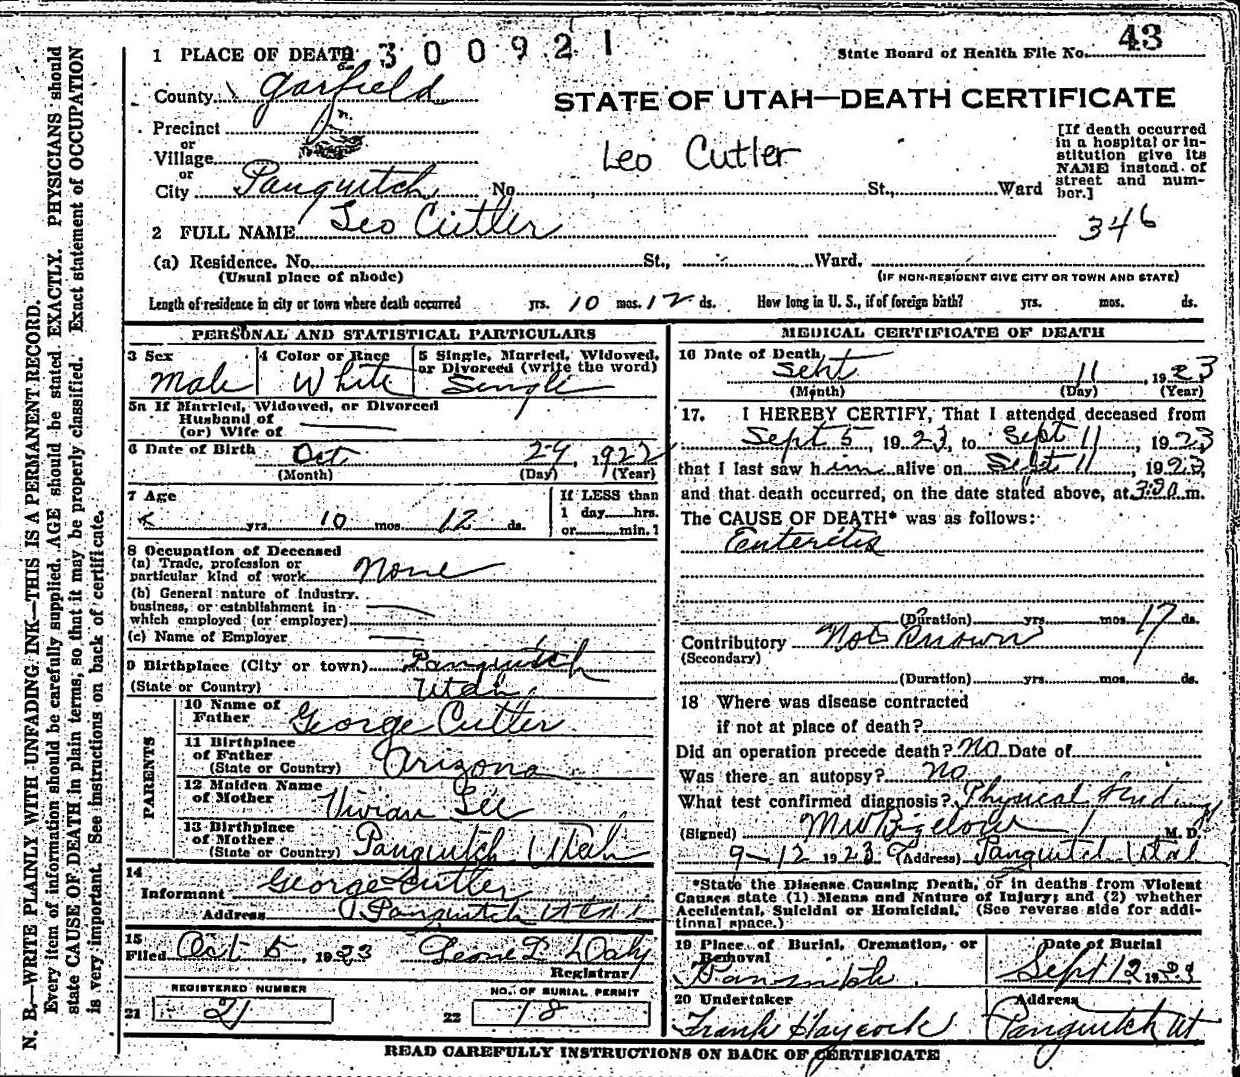 1 PLACE OF DEATH 300921
State Board of Health File No. 43
County Garfield
STATE OF UTAH—DEATH CERTIFICATE
Precinct
or
Village
or
City Panguitch No. St., Ward
Leo Cutler
[If death occurred in a hospital or institution give its NAME instead of street and number.]
2 FULL NAME Leo Cutler
346
(a) Residence. No. St., Ward.
(Usual place of abode) (IF NON-RESIDENT GIVE CITY OR TOWN AND STATE)
Length of residence in city or town where death occurred yrs. 10 mos. 12 ds. How long in U. S., if of foreign birth? yrs. mos. ds.
PERSONAL AND STATISTICAL PARTICULARS
3 Sex Male
4 Color or Race White
5 Single, Married, Widowed, or Divorced (write the word) Single
5a If Married, Widowed, or Divorced
Husband of
(or) Wife of
6 Date of Birth Oct 29, 1922
(Month) (Day) (Year)
7 Age
yrs. 10 mos. 12 ds.
If LESS than
1 day hrs.
or min.?
8 Occupation of Deceased
(a) Trade, profession or
particular kind of work None
(b) General nature of industry,
business, or establishment in
which employed (or employer)
(c) Name of Employer
9 Birthplace (City or town) Panguitch
(State or Country) Utah
PARENTS
10 Name of
Father George Cutler
11 Birthplace
of Father
(State or Country) Arizona
12 Maiden Name
of Mother Vivian Lee
13 Birthplace
of Mother
(State or Country) Panguitch Utah
14
Informant George Cutler
Address Panguitch Utah
15
Filed Oct 5, 1923
Registrar
REGISTERED NUMBER
21 21
NO. OF BURIAL PERMIT
22 18
MEDICAL CERTIFICATE OF DEATH
16 Date of Death
Sept 11, 1923
(Month) (Day) (Year)
17. I HEREBY CERTIFY, That I attended deceased from
Sept 5, 1923, to Sept 11, 1923
that I last saw him alive on Sept 11, 1923,
and that death occurred, on the date stated above, at 3:30 m.
The CAUSE OF DEATH* was as follows:
Enteritis
(Duration) yrs. mos. 17 ds.
Contributory Not Known
(Secondary)
(Duration) yrs. mos. ds.
18 Where was disease contracted
if not at place of death?
Did an operation precede death? No Date of
Was there an autopsy? No
What test confirmed diagnosis? Physical finding
(Signed) MW Bigelow M. D.
9-12 1923 (Address) Panguitch Utah
*State the Disease Causing Death, or in deaths from Violent
Causes state (1) Means and Nature of Injury; and (2) whether
Accidental, Suicidal or Homicidal. (See reverse side for addi-
tional space.)
19 Place of Burial, Cremation, or
Removal
Panguitch
Date of Burial
Sept 12 1923
20 Undertaker
Frank Haycock
Address
Panguitch Ut
READ CAREFULLY INSTRUCTIONS ON BACK OF CERTIFICATE
N. B.—WRITE PLAINLY WITH UNFADING INK—THIS IS A PERMANENT RECORD.
Every item of information should be carefully supplied. AGE should be stated EXACTLY. PHYSICIANS should
state CAUSE OF DEATH in plain terms, so that it may be properly classified. Exact statement of OCCUPATION
is very important. See instructions on back of certificate.